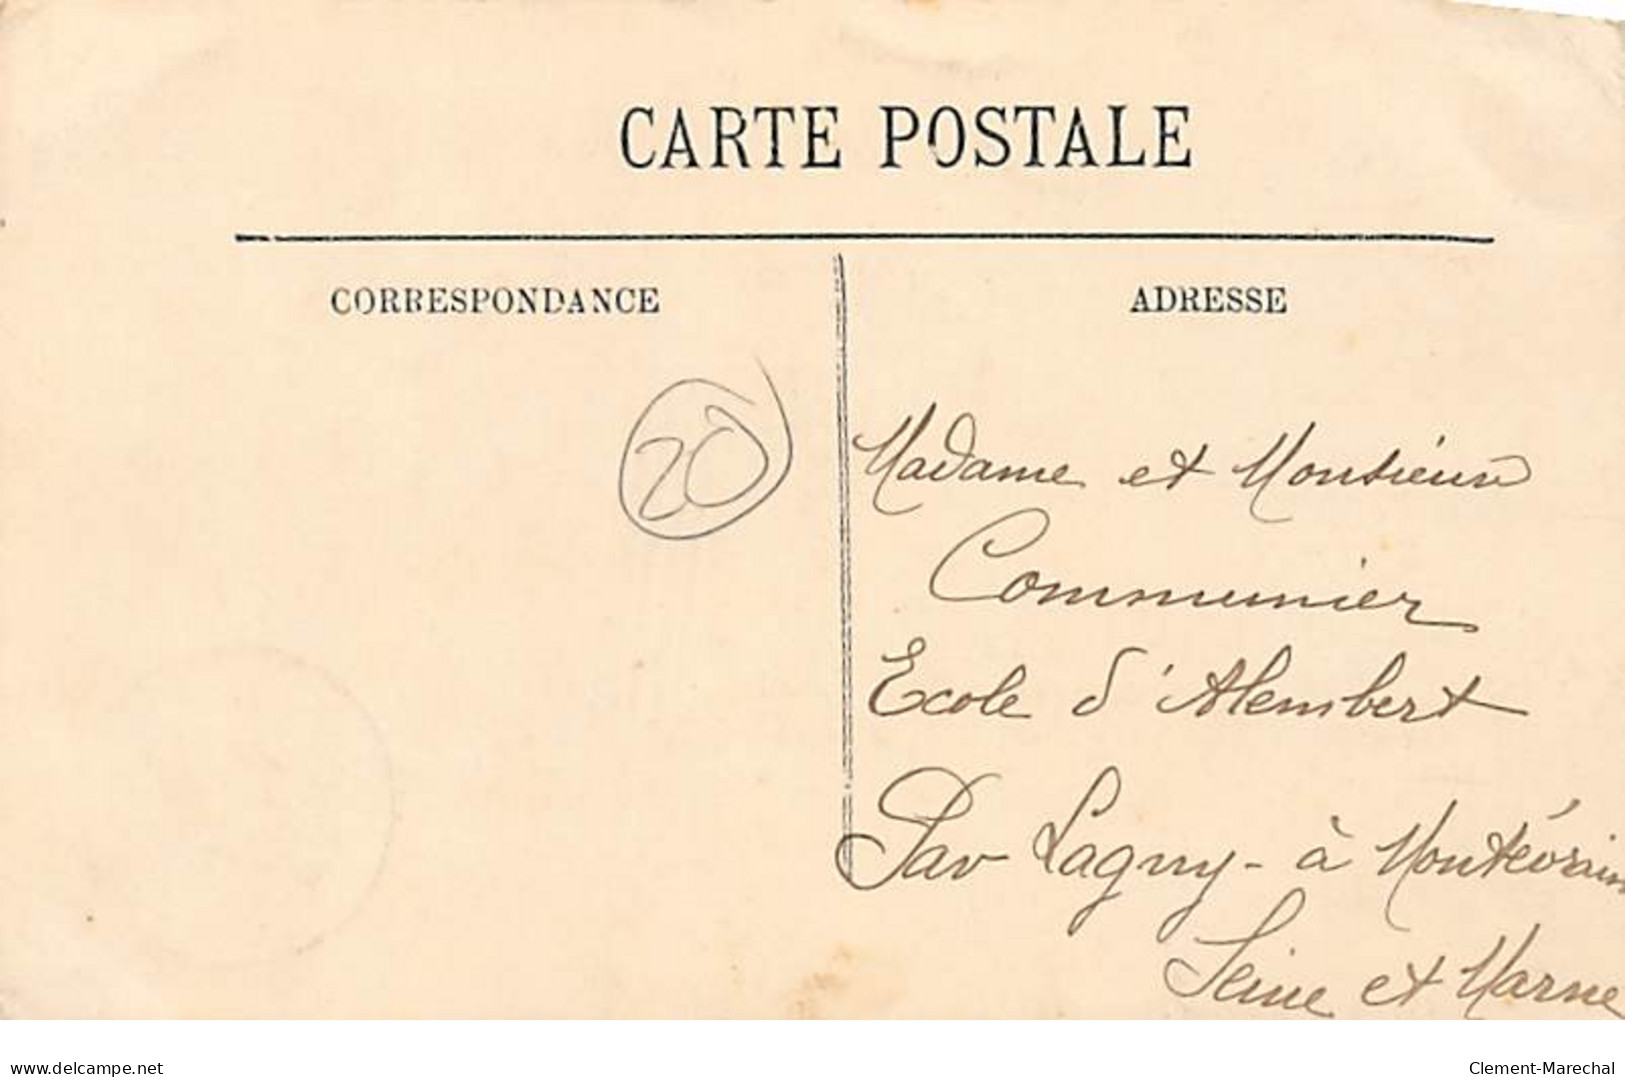 CARTE POSTALE
CORRESPONDANCE
ADRESSE
20
Madame et Monsieur
Communier
Ecole d'Alembert
Par Lagny - à Montévrain
Seine et Marne
delcampe.net
Clement-Marechal